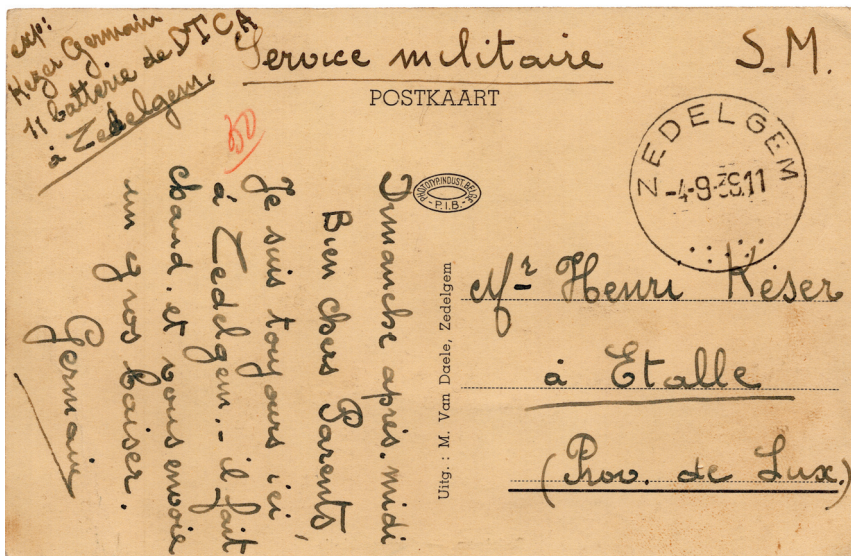 exp:
Kezer Germain
11 batterie de DTCA
à Zedelgem.
Service militaire
S.M.
POSTKAART
ZEDELGEM
-4-9-39.11
PHOTOTYP.INDUST.BELGE
- P.I.B. -
30
Dimanche après-midi
Bien chers Parents
Je suis toujours ici,
à Zedelgem. - il fait
chaud. et vous envoie
un gros baiser.
Germain
Uitg. : M. Van Daele, Zedelgem
Mr Henri Késer
à Etalle
(Prov. de Lux.)